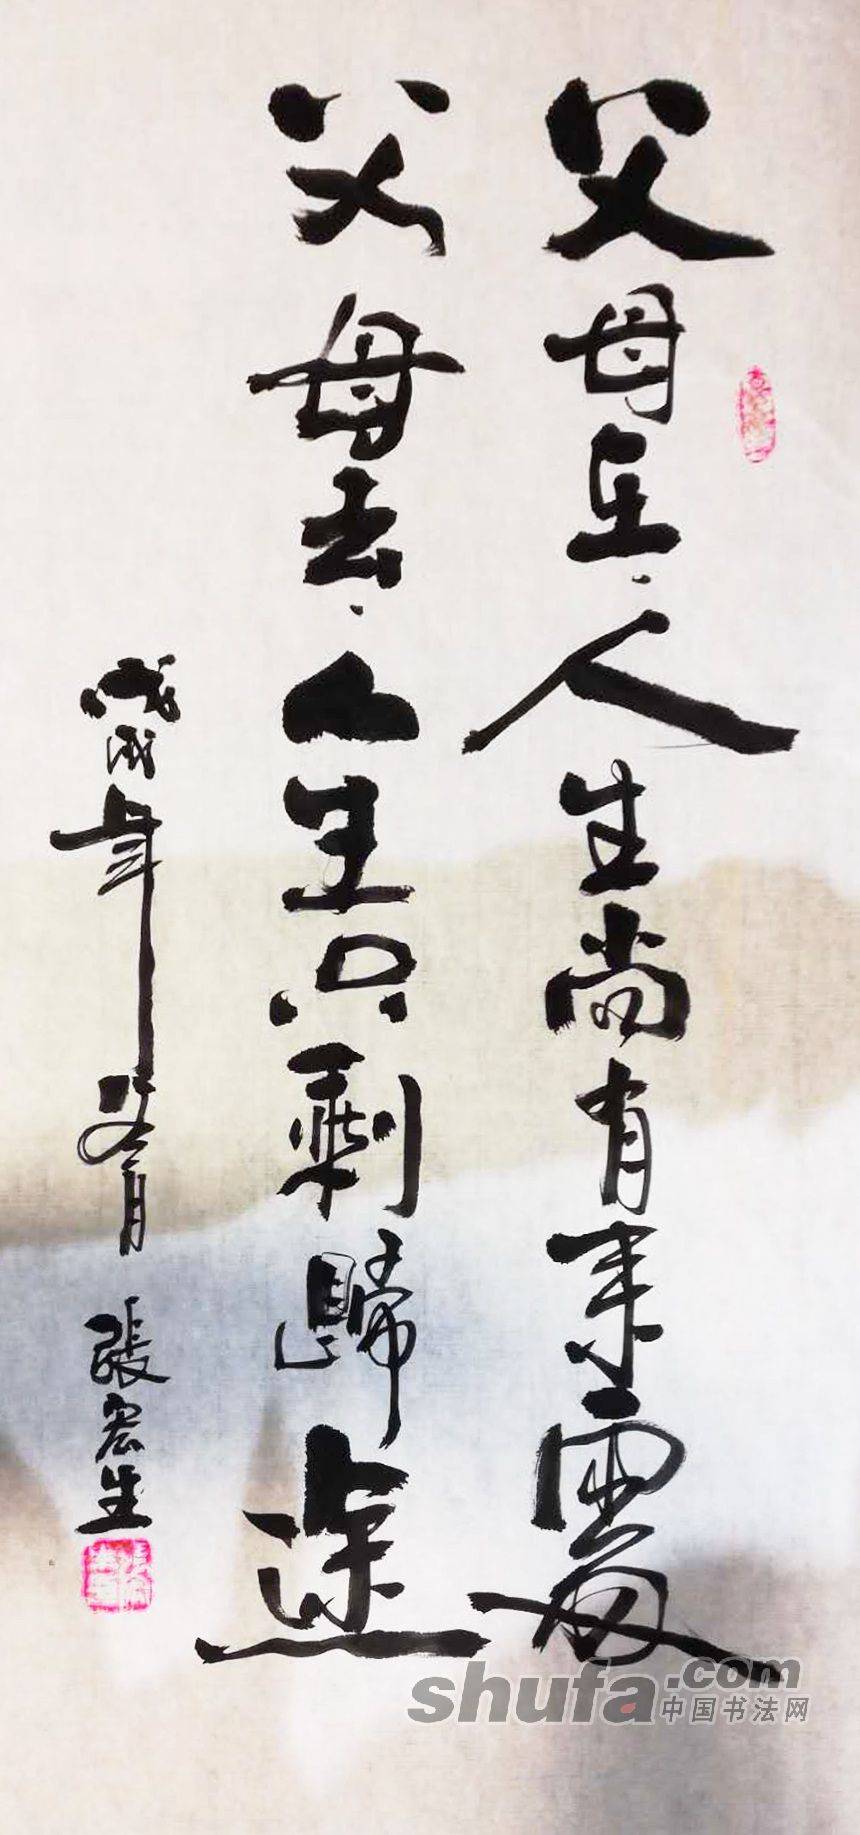 父母在.人生尚有来處
父母去.人生只剩歸途
戊戌年 月 張宏生
shufa.com
中国书法网